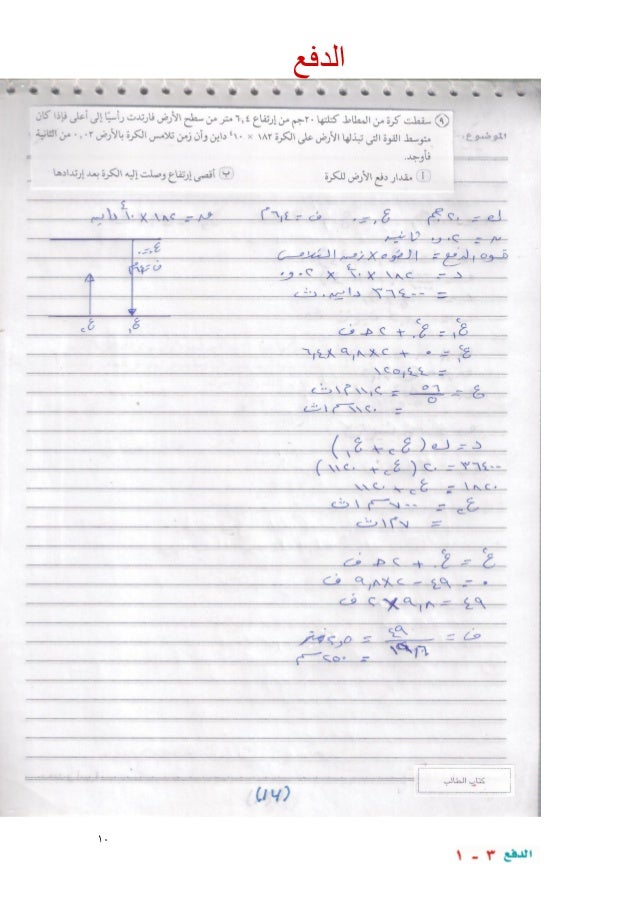 الدفع
الموضوع:
٩ سقطت كرة من المطاط كتلتها ٢٠جم من إرتفاع ٦,٤ متر من سطح الأرض فارتدت رأسيًا إلى أعلى فإذا كان
متوسط القوة التى تبذلها الأرض على الكرة ١٨٢ × ١٠٤ داين وأن زمن تلامس الكرة بالأرض ٠,٠٢ من الثانية
فأوجد.
أ مقدار دفع الأرض للكرة ب أقصى إرتفاع وصلت إليه الكرة بعد إرتدادها
ك = ٢٠ جم ع. = ٠ ف = ٦,٤ م ١٨٢ × ١٠٤ داين
ن = ٠,٠٢ ثانية
قوة الدفع = القوة × زمن التلامس
د = ١٨٢ × ١٠٤ × ٠,٠٢
= ٣٦٤٠٠ داين.ث
ع.=٠
ف=٦,٤م
ع٢ ع١
ع١٢ = ع.٢ + ٢ د ف
ع١٢ = ٠ + ٢ × ٩,٨ × ٦,٤
= ١٢٥,٤٤
ع = ٥٦/٥ = ١١,٢ م/ث
= ١١٢٠ سم/ث
د = ك (ع٢ + ع١)
٣٦٤٠٠ = ٢٠ (ع٢ + ١١٢٠)
١٨٢٠ = ع٢ + ١١٢٠
ع٢ = ٧٠٠ سم/ث
= ٧ م/ث
ع٢ = ع.٢ + ٢ د ف
٠ = ٤٩ - ٢ × ٩,٨ ف
٤٩ = ٩,٨ × ٢ ف
ف = ٤٩/١٩,٦ = ٢,٥ متر
= ٢٥٠ سم
كتاب الطالب
(١٣)
١٠
الدفع ٣ - ١